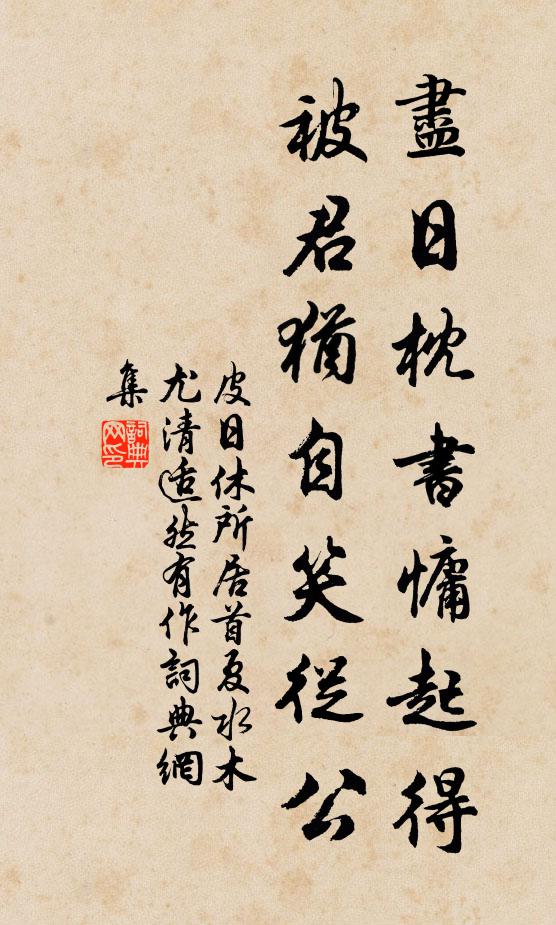 盡日枕書慵起得
被君猶自笑從公
皮日休所居首夏水木
尤清適然有作詞典網
集
詞典
网印